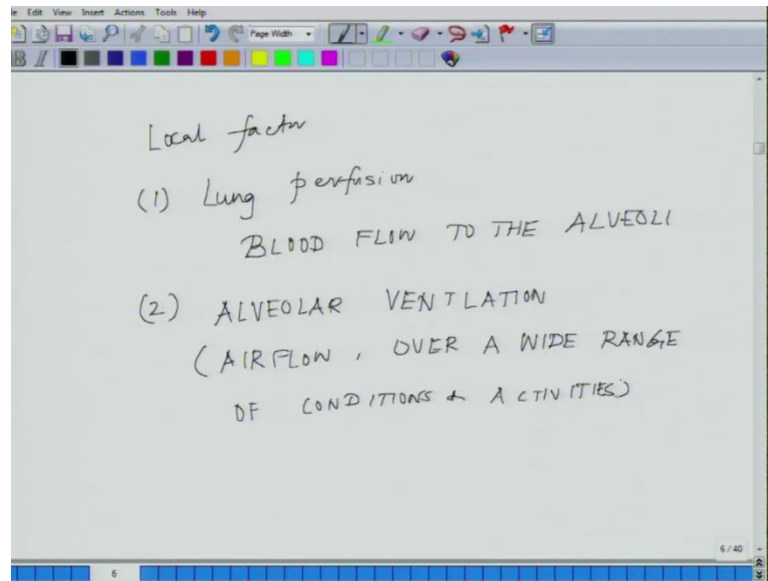 e Edit View Insert Actions Tools Help
Page Width
B I
Local factor
(1) Lung perfusion
BLOOD FLOW TO THE ALVEOLI
(2) ALVEOLAR VENTLATION
(AIRFLOW, OVER A WIDE RANGE
OF CONDITIONS & ACTIVITIES)
6/40
6